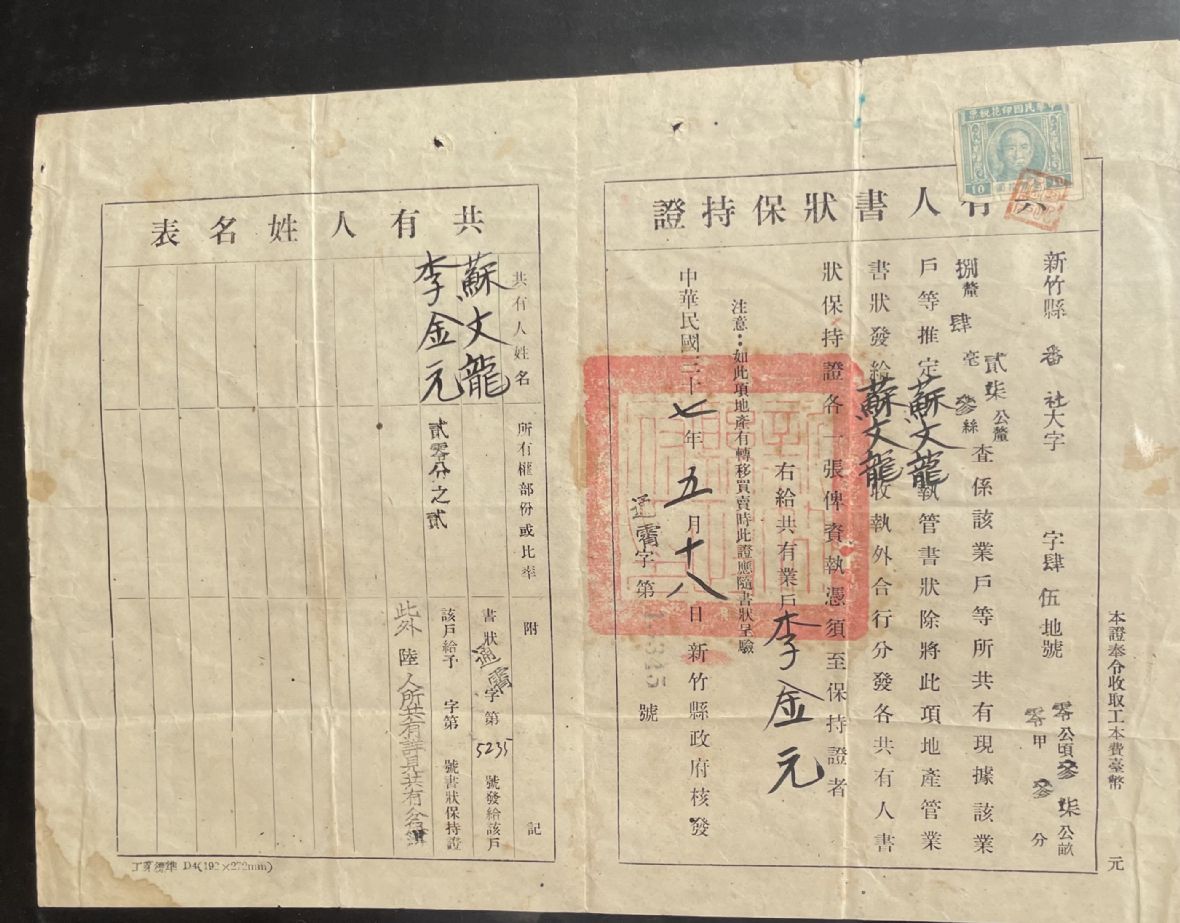 中華民國印花稅票
10
有人書狀保持證
本證奉令收取工本費臺幣　元
新竹縣 番 社大字　字肆伍地號 零公頃參柒公畝貳柒公釐
零甲參分捌釐肆毫參絲
查係該業戶等所共有現據該業
戶等推定蘇文龍執管書狀除將此項地產管業
書狀發給蘇文龍收執外合行分發各共有人書
狀保持證各一張俾資執憑須至保持證者
右給共有業戶李金元
注意：如此項地產有轉移買賣時此證應隨書狀呈驗
中華民國三十七年五月十八日新竹縣政府核發
通霄字第 號
共有人姓名表
共有人姓名
所有權部份或比率
附記
蘇文龍
李金元
貳零分之貳
書狀通霄字第5235號發給該戶
該戶給予　字第　號書狀保持證
此外陸人所共有詳見共有名
D4(192×272mm)